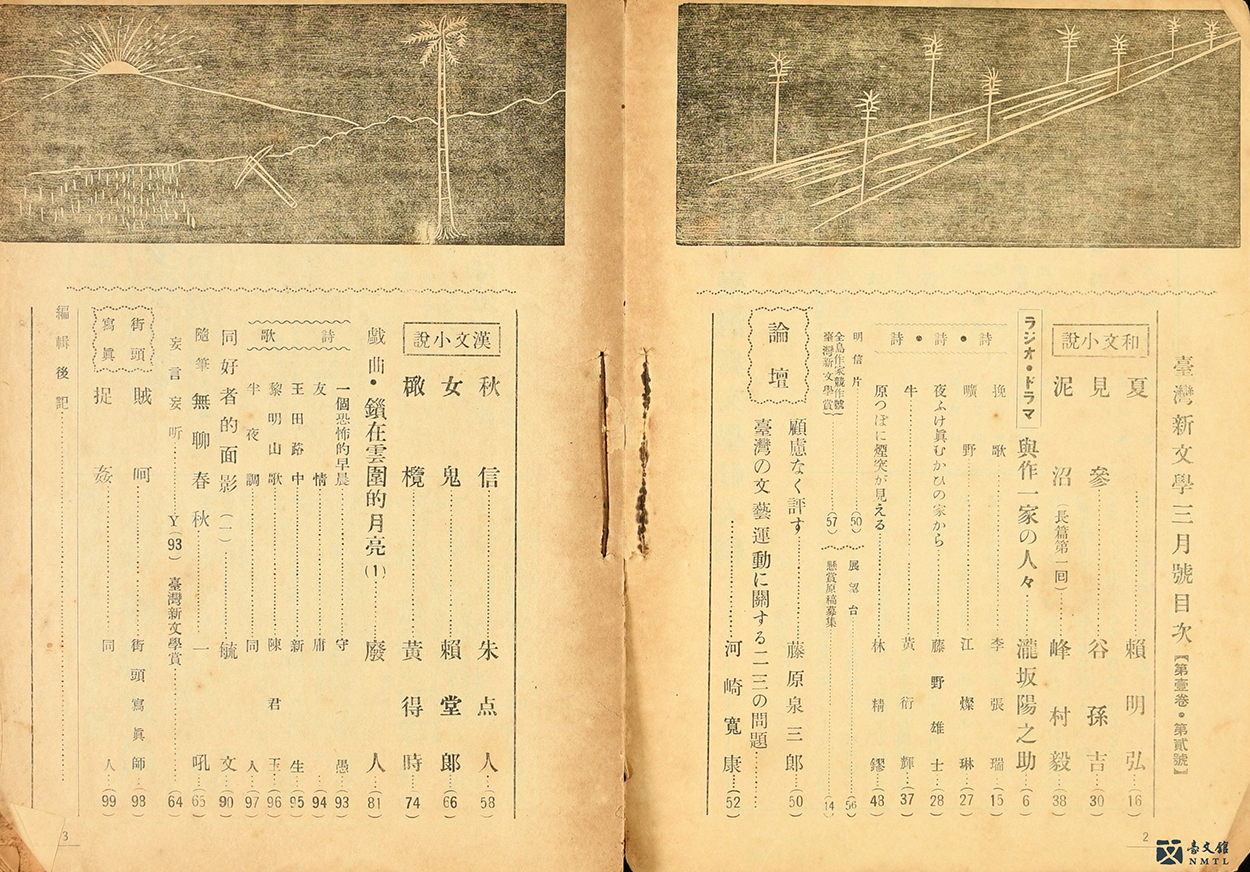 臺灣新文學三月號目次【第壹卷・第貳號】
和文小說
夏……賴明弘(16)
見參……谷孫吉(30)
泥沼(長篇第一回)……峰村毅(38)
ラジオ・ドラマ
與作一家の人々……瀧坂陽之助(6)
詩・詩・詩
挽歌……李張瑞(15)
曠野……江燦琳(27)
夜ふけ眞むかひの家から……藤野雄士(28)
牛……黃衍輝(37)
原つぱに煙突が見える……林精鏐(48)
明信片……(50)
展望台……(56)
全島作家競作號
臺灣新文學賞……(57)
懸賞原稿募集……(14)
論壇
顧慮なく評す……藤原泉三郎(50)
臺灣の文藝運動に關する二三の問題……
……河崎寬康(52)
2
漢文小說
秋信……朱点人(58)
女鬼……賴堂郎(66)
橄欖……黃得時(74)
戲曲・鎖在雲圍的月亮(1)……廢人(81)
詩歌
一個恐怖的早晨……守愚(93)
友情……庸(94)
王田路中……新生(95)
黎明山歌……陳君玉(96)
半夜調……同人(97)
同好者的面影(一)……毓文(90)
隨筆 無聊春秋……一吼(65)
妄言妄听……Y(93)
臺灣新文學賞……(64)
街頭寫眞
賊呵……街頭寫眞師(98)
捉姦……同人(99)
編輯後記……
3
臺文館
NMTL